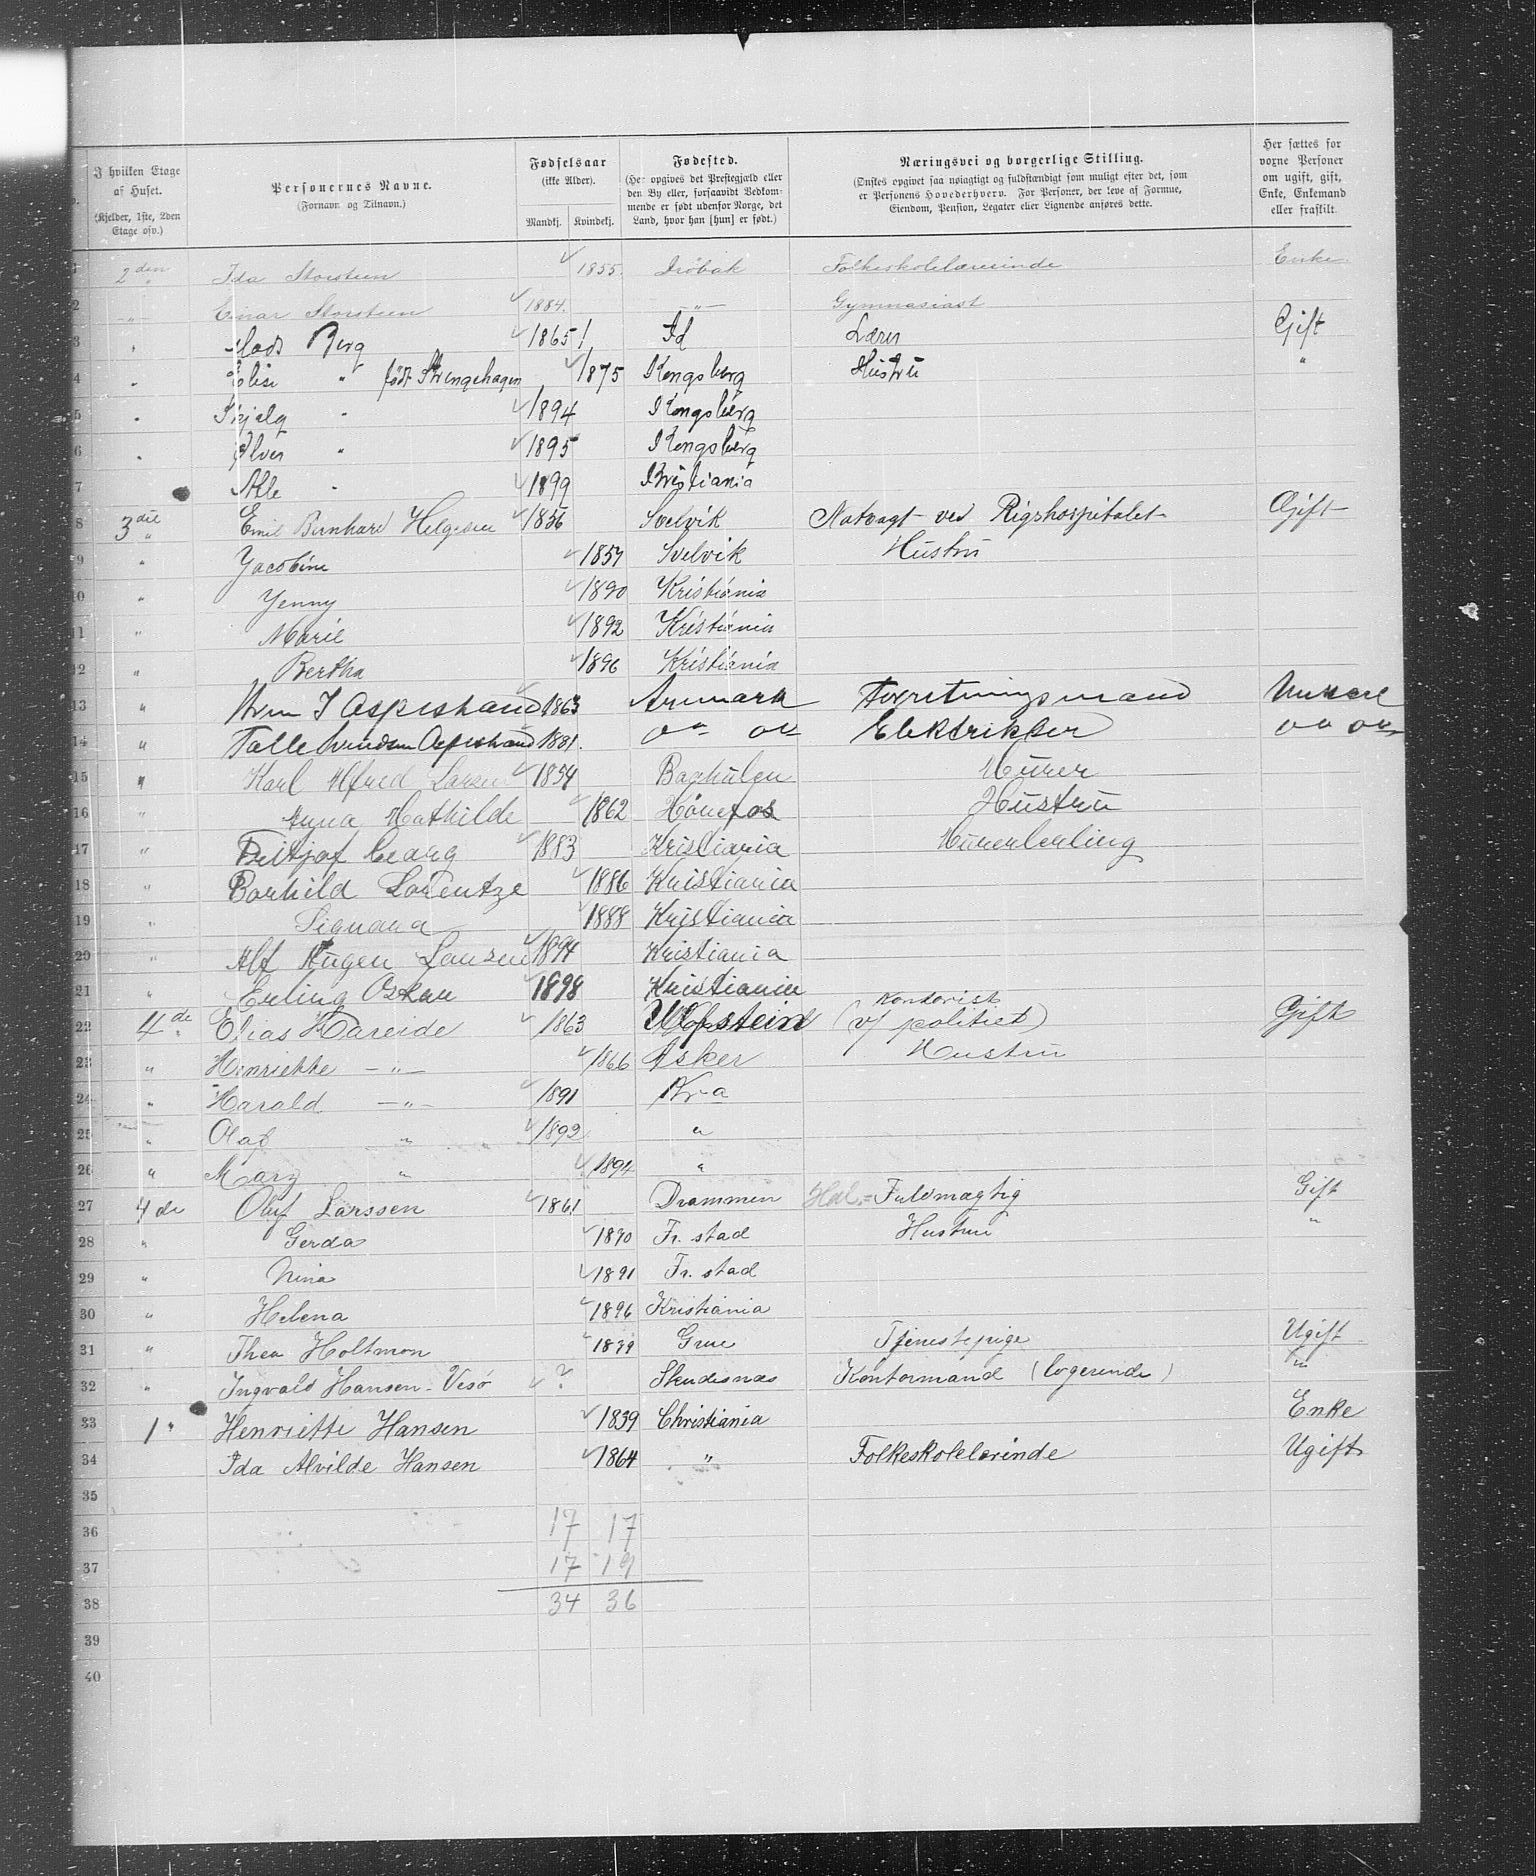 I hvilken Etage af Huset. (Kjelder, 1ste, 2den Etage osv.) | Personernes Navne. (Fornavn og Tilnavn.) | Fødselsaar (ikke Alder). Mandkj. Kvindekj. | Fødested. (Her opgives det Prestegjæld eller den By eller, forsaavidt Vedkommende er født udenfor Norge, det Land, hvor han [hun] er født.) | Næringsvei og borgerlige Stilling. (Ønskes opgivet saa nøiagtigt og fuldstændigt som muligt efter det, som er Personens Hovederhverv. For Personer, der leve af Formue, Eiendom, Pension, Legater eller Lignende anføres dette. | Her sættes for voxne Personer om ugift, gift, Enke, Enkemand eller fraskilt.
2den Ida Storsteen 1855. Drøbak Folkeskolelærerinde Enke
2 " Einar Storsteen 1884. — " — Gymnasiast
3 " Mads Berg 1865 Id Lærer Gift
4 " Elise " født Strengehagen 1875 Kongsberg Hustru "
5 " Skjalg " 1894 Kongsberg
6 " Ølver " 1895 Kongsberg
7 " Atle " 1899 Kristiania
8 3die " Emil Bernhard Helgesen 1856 Svelvik Natvagt ved Rigshospitalet Gift
9 " Jacobine 1857 Svelvik Hustru
10 " Jenny 1890 Kristiania
11 " Marie 1892 Kristiania
12 " Bertha 1896 Kristiania
13 " Hrm J Aspestrand 1863 Aremark Forretningsmand
14 " Aspestrand 1881. Elektriker
15 " Karl Alfred Larsen 1854 Murer
16 " Anna Mathilde 1862 Hönefos Hustru
17 " Fritjof Georg 1883 Kristiania Murerlerling
18 " Borhild Lorentze 1886 Kristiania
19 " Signora 1888 Kristiania
20 " Alf Augen Larsen 1894 Kristiania
21 " Erling Oskar 1898 Kristiania
22 4de " Elias Hareide 1863 Ulfstein Kontorist (v/ politiet) Gift
23 " Henriette — " — 1866 Asker Hustru
24 " Harald — " — 1891 Kr-a
25 " Olaf " 1892 "
26 " Mary " 1894 "
27 4de Oluf Larssen 1861 Drammen Fuldmægtig Gift
28 " Gerda 1870 Fr. stad Hustru "
29 " Nina 1891 Fr. stad
30 " Helena 1896 Kristiania
31 " Thea Holtmon 1879 Grue Tjenestepige Ugift
32 " Ingvald Hansen-Visø ? Skudesnæs Kontormand (logerende) "
33 1 " Henriette Hansen 1839 Christiania Enke
34 Ida Alvilde Hansen 1864 " Folkeskolelærinde Ugift
35
36 17 17
37 17 19
38 34 36
39
40